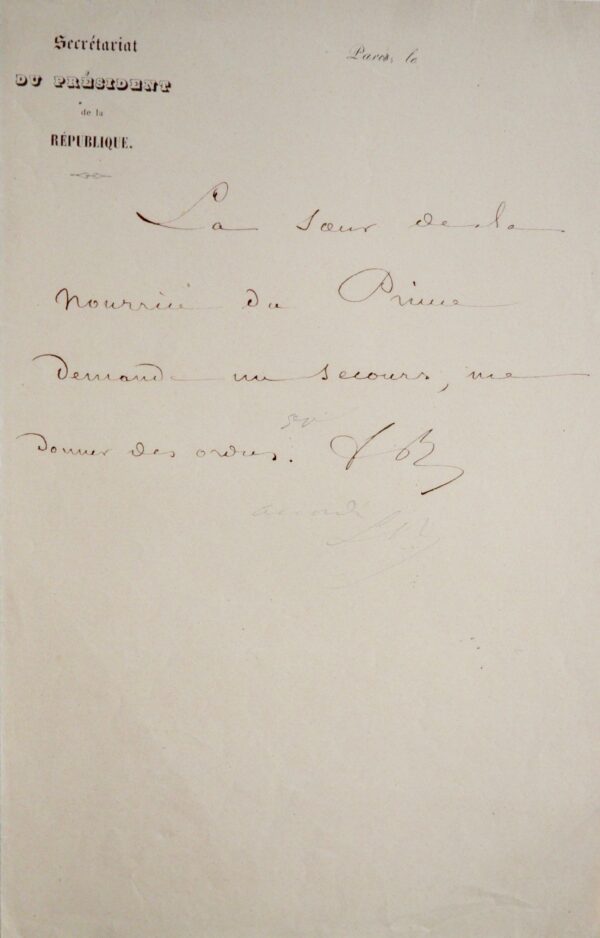 Secrétariat
DU PRÉSIDENT
de la
RÉPUBLIQUE.
Paris, le
La sœur de la
nourrice du Prince
demande un secours, me
donner des ordres.
accordé